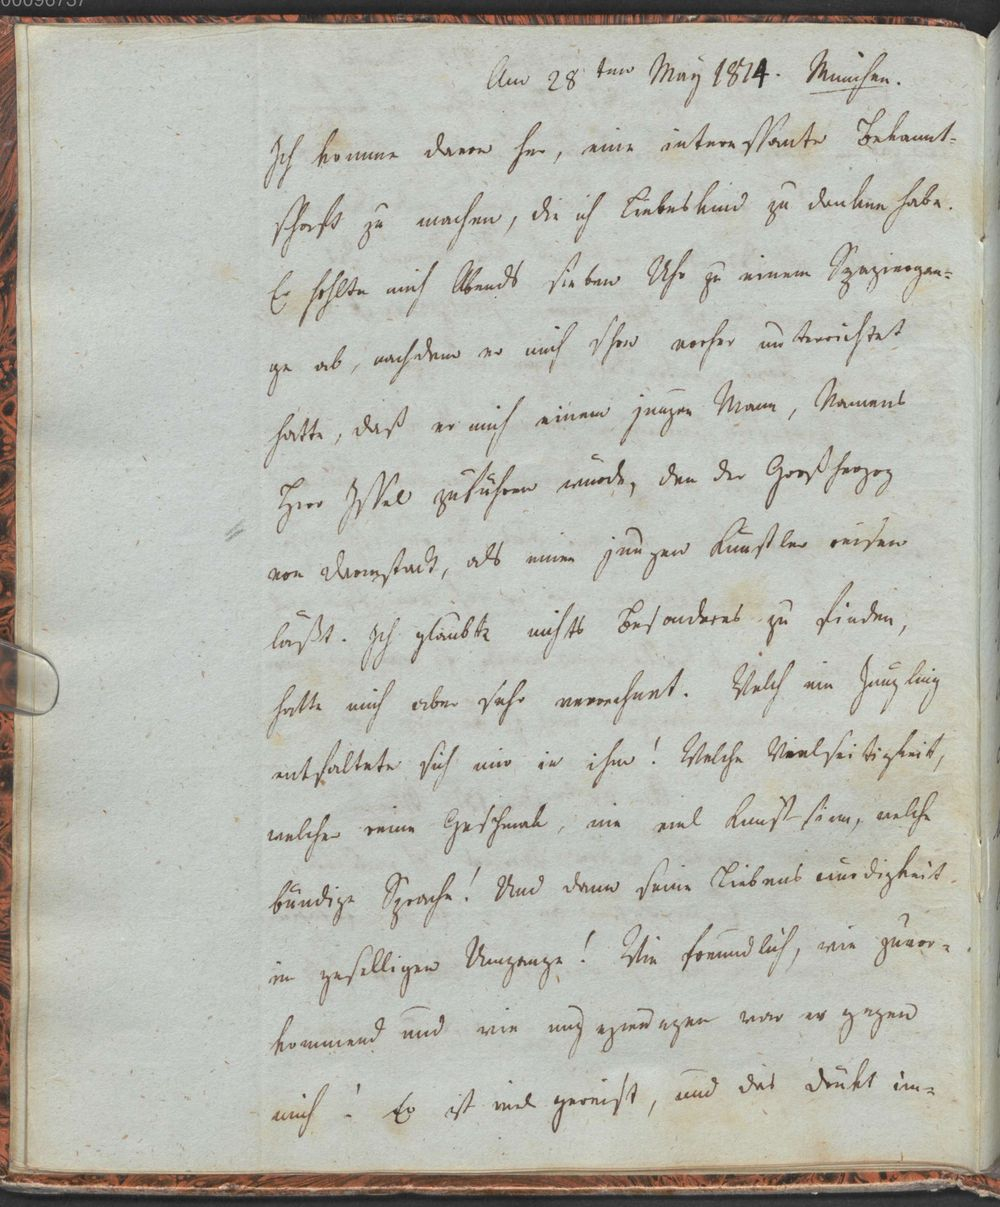 00096737
Am 28ten May 1814. München.
Ich komme davon her, eine interessante Bekannt-
schaft zu machen, die ich Liebeskind zu danken habe.
Er hohlte mich Abends sieben Uhr zu einem Spaziergan-
ge ab, nachdem er mich schon vorher unterrichtet
hatte, daß er mich einem jungen Mann, Namens
Herr Issel zuführen würde, den der Großherzog
von Darmstadt, als einen jungen Künstler reisen
läßt. Ich glaubte nichts Besonderes zu finden,
hatte mich aber sehr verrechnet. Welch ein Jüngling
entfaltete sich mir in ihm! Welche Vielseitigkeit,
welcher reine Geschmak, wie viel Kunstsinn, welche
bündige Sprache! Und dann seine Liebenswürdigkeit
im geselligen Umgange! Wie freundlich, wie zuvor-
kommend und wie ungezwungen war er gegen
mich! Er ist viel gereist, und das drükt im-